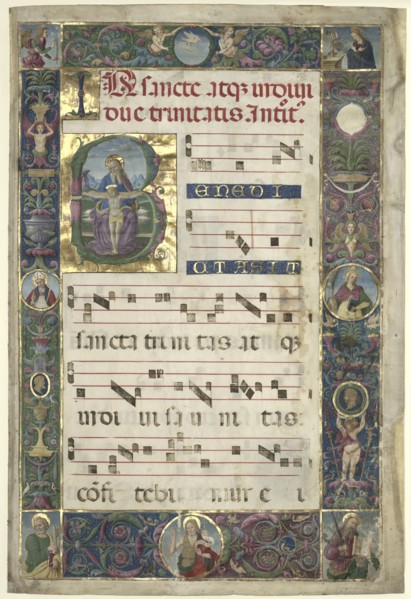 IN sancte atqꝫ indiui
due trinitatis Intit͂.
B ENEDI
CTASIT
sancta tri ni tas at qꝫ
indi ui sa u ni tas:
cōfi tebi mur e i